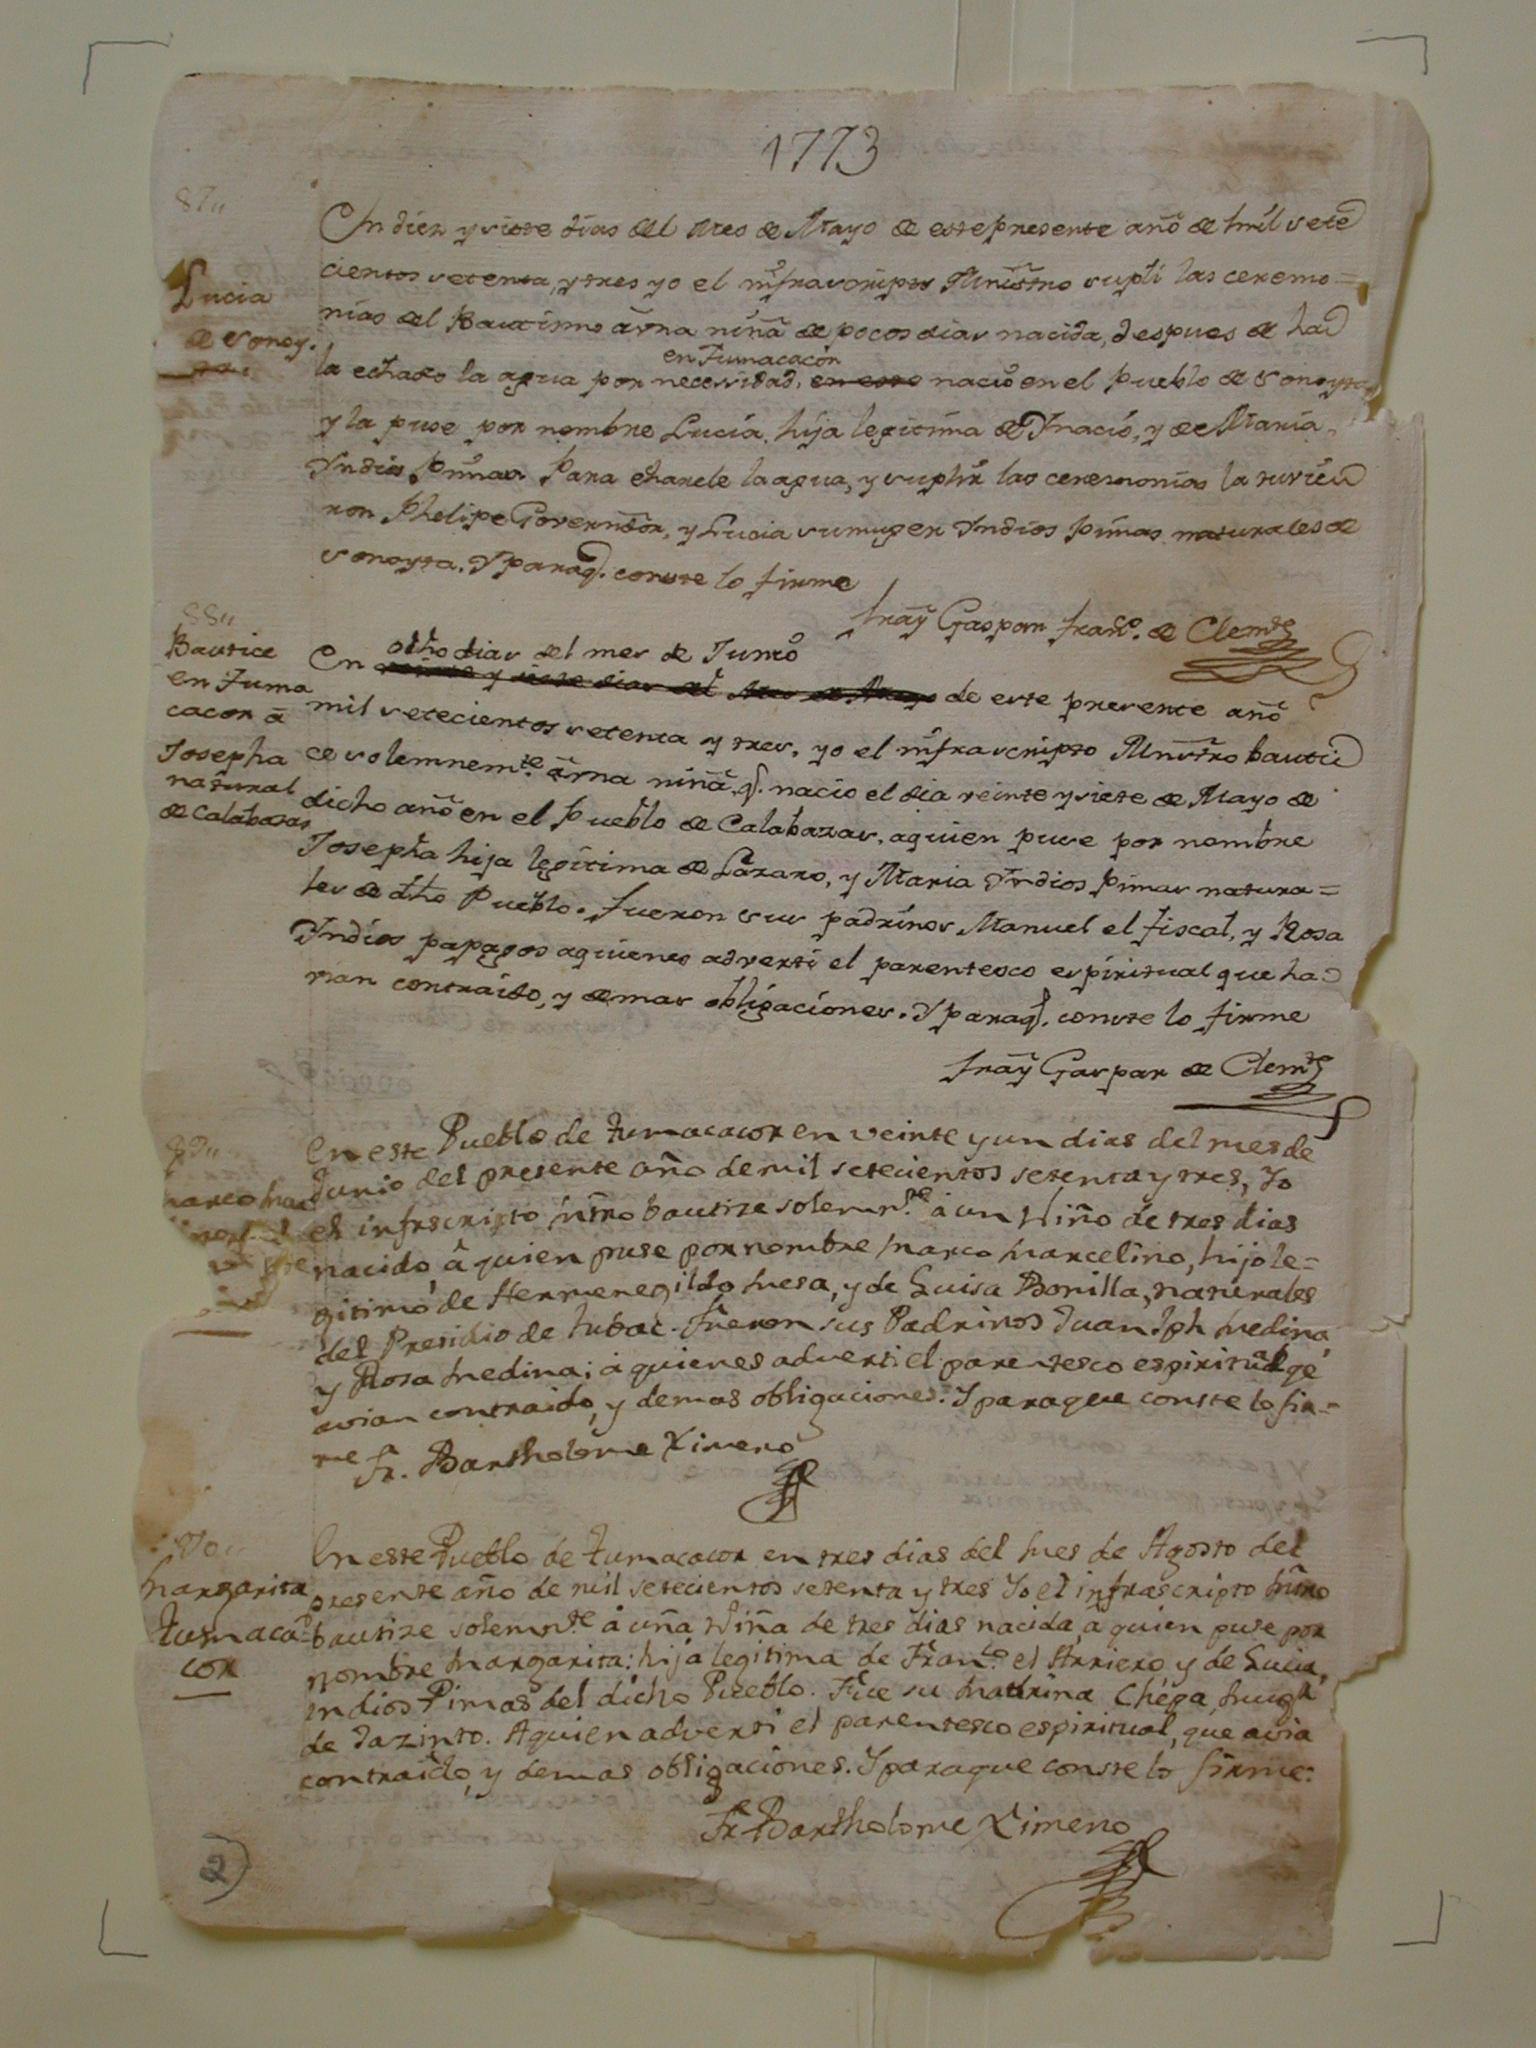 1773
87,,
En diez y siete dias del Mes de Mayo de este presente año de mil sete
cientos setenta, y tres yo el infrascripto Ministro supli las ceremo=
Lucia
de Sonoy.
nias del Bautismo à vna niña de pocos dias nacida, despues de ha
en Tumacacor
la echado la agua por necessidad, en este nació en el Pueblo de Sonoyta
y la puse por nombre Lucia, hija legitima de Ynacio, y de Maria,
Yndios Pimas Para echarele la agua, y suplir las ceremonias la tuvie
ron Phelipe Governador, y Lucia su muger Yndios pimas naturales de
Sonoyta. Y paraq. conste lo firme
Fray Gaspar Franco. de Clemte
88,,
Bautice
en Tuma
cacor à
Josepha
natural
de Calabasas
ocho dias del mes de Junio
En veinte y siete dias del Mes de Mayo de este presente año
mil setecientos setenta y tres, yo el infrascripto Mnstro bauti
ce solemnemte. à vna niña, q. nacio el dia veinte y siete de Mayo de
dicho año en el Pueblo de Calabazas, aquien puse por nombre
Josepha hija legitima de Lázaro, y Maria Yndios Pimas natura=
les de dho Pueblo. Fueron sus padrinos Manuel el fiscal, y Rosa
Yndios papagos aquienes adverti el parentesco espiritual que ha
vian contraido, y demas obligaciones. Y paraq. conste lo firme
Fray Gaspar de Clemte
89,,
Marco Mar
En este Pueblo de Tumacacor en veinte y un dias del mes de
Junio del presente año de mil setecientos setenta y tres, Yo
el infrscripto Mtro bautize solemnte. à un Niño de tres dias
nacido, à quien puse por nombre Marco Marcelino, hijo le=
gitimo de Hermenegildo Mesa, y de Luisa Bonilla, naturales
del Presidio de Tubac. Fueron sus Padrinos Juan Jph Medina
y Rosa Medina; à quienes adverti el parentesco espiritual qe
avian contraido, y demas obligaciones. Y paraque conste lo fir=
me Fr. Bartholome Ximeno
90,,
Margarita
Tumaca
cor
En este Pueblo de Tumacacor en tres dias del Mes de Agosto del
presente año de mil setecientos setenta y tres Yo el infrascripto Mtro
bautize solemnte à uña Niña de tres dias nacida, à quien puse por
nombre Margarita: hija legitima de Franco. el Arriero y de Lucia,
Indios Pimas del dicho Pueblo. Fue su Madrina Chepa Muger
de Jazinto. Aquien adverti el parentesco espiritual, que avia
contraido, y demas obligaciones. Y paraque conste lo firme:
Fr. Bartholome Ximeno
2)